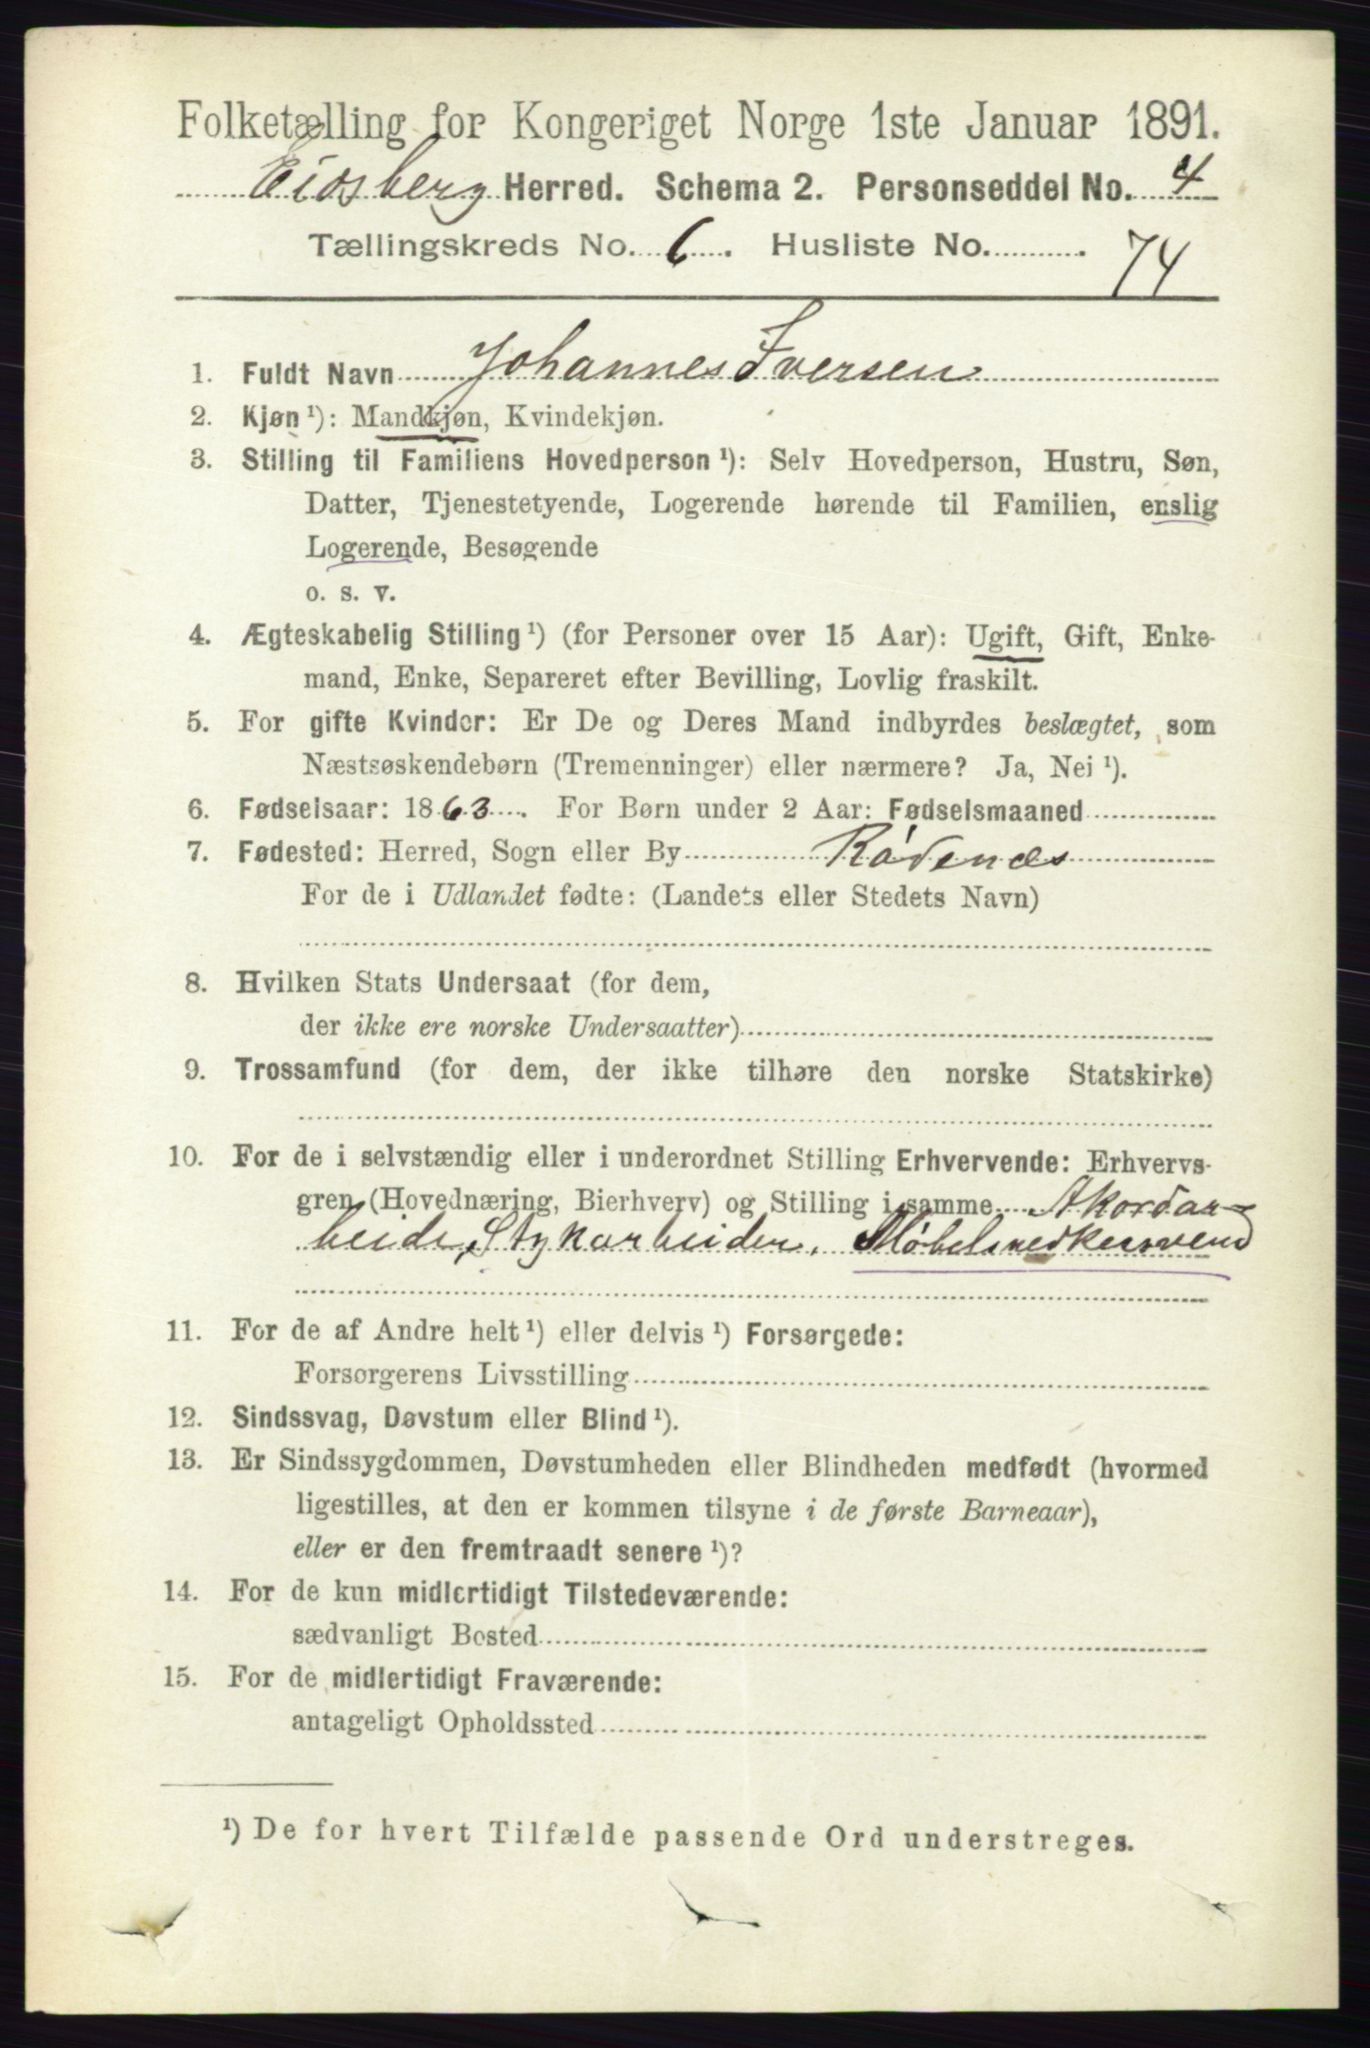 Folketælling for Kongeriget Norge 1ste Januar 1891.
Eidsberg Herred. Schema 2. Personseddel No. 4
Tællingskreds No. 6. Husliste No. 74.
1. Fuldt Navn Johannes Iversen
2. Kjøn ¹): Mandkjøn, Kvindekjøn.
3. Stilling til Familiens Hovedperson ¹): Selv Hovedperson, Hustru, Søn,
Datter, Tjenestetyende, Logerende hørende til Familien, enslig
Logerende, Besøgende
o. s. v.
4. Ægteskabelig Stilling ¹) (for Personer over 15 Aar): Ugift, Gift, Enke-
mand, Enke, Separeret efter Bevilling, Lovlig fraskilt.
5. For gifte Kvinder: Er De og Deres Mand indbyrdes beslægtet, som
Næstsøskendebørn (Tremenninger) eller nærmere? Ja, Nei ¹).
6. Fødselsaar: 1863. For Børn under 2 Aar: Fødselsmaaned
7. Fødested: Herred, Sogn eller By Rødenæs
For de i Udlandet fødte: (Landets eller Stedets Navn)
8. Hvilken Stats Undersaat (for dem,
der ikke ere norske Undersaatter)
9. Trossamfund (for dem, der ikke tilhøre den norske Statskirke)
10. For de i selvstændig eller i underordnet Stilling Erhvervende: Erhvervs-
gren (Hovednæring, Bierhverv) og Stilling i samme Akordar-
beide, Stykarbeider. Møbelsnedkersvend
11. For de af Andre helt ¹) eller delvis ¹) Forsørgede:
Forsørgerens Livsstilling
12. Sindssvag, Døvstum eller Blind ¹).
13. Er Sindssygdommen, Døvstumheden eller Blindheden medfødt (hvormed
ligestilles, at den er kommen tilsyne i de første Barneaar),
eller er den fremtraadt senere ¹)?
14. For de kun midlertidigt Tilstedeværende:
sædvanligt Bosted
15. For de midlertidigt Fraværende:
antageligt Opholdssted
¹) De for hvert Tilfælde passende Ord understreges.